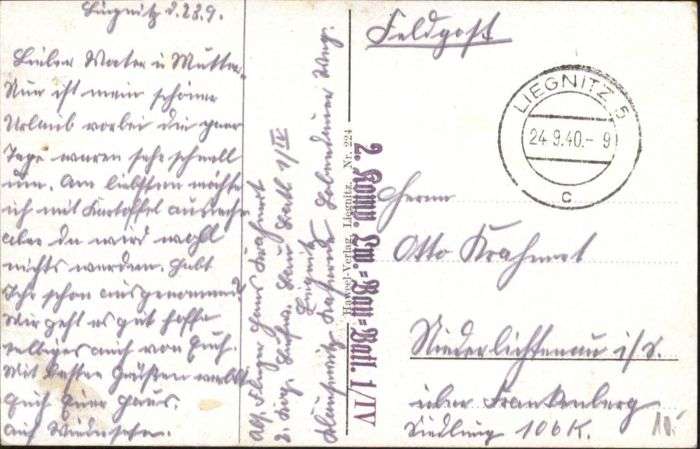 Liegnitz d. 23.9.
Lieber Vater u Mutter.
Nun ist mein schöner
Urlaub vorbei die paar
Tage waren sehr schnell
um. Am liebsten möchte
ich mit Kartoffel ausmachen
aber da wird wohl
nichts werden. Habt
Ihr schon ausgenommen
Mir geht es gut hoffe
selbiges auch von Euch.
Mit besten Grüßen verbleibt
Euch Euer Hans.
Auf Wiedersehn.
Abs. Flieger Hans Krahmert
2. Komp. Bau Batl 1/IV
Liegnitz
Kaserne Weg.
Haweel-Verlag, Liegnitz, Nr. 224
2. Komp. Lw.=Bau=Batl. 1/IV
Feldpost
LIEGNITZ 5
24.9.40.- 9
c
Herrn
Otto Krahmert
Niederlichtenau i/S.
über Frankenberg
Siedlung 106K.
10.-